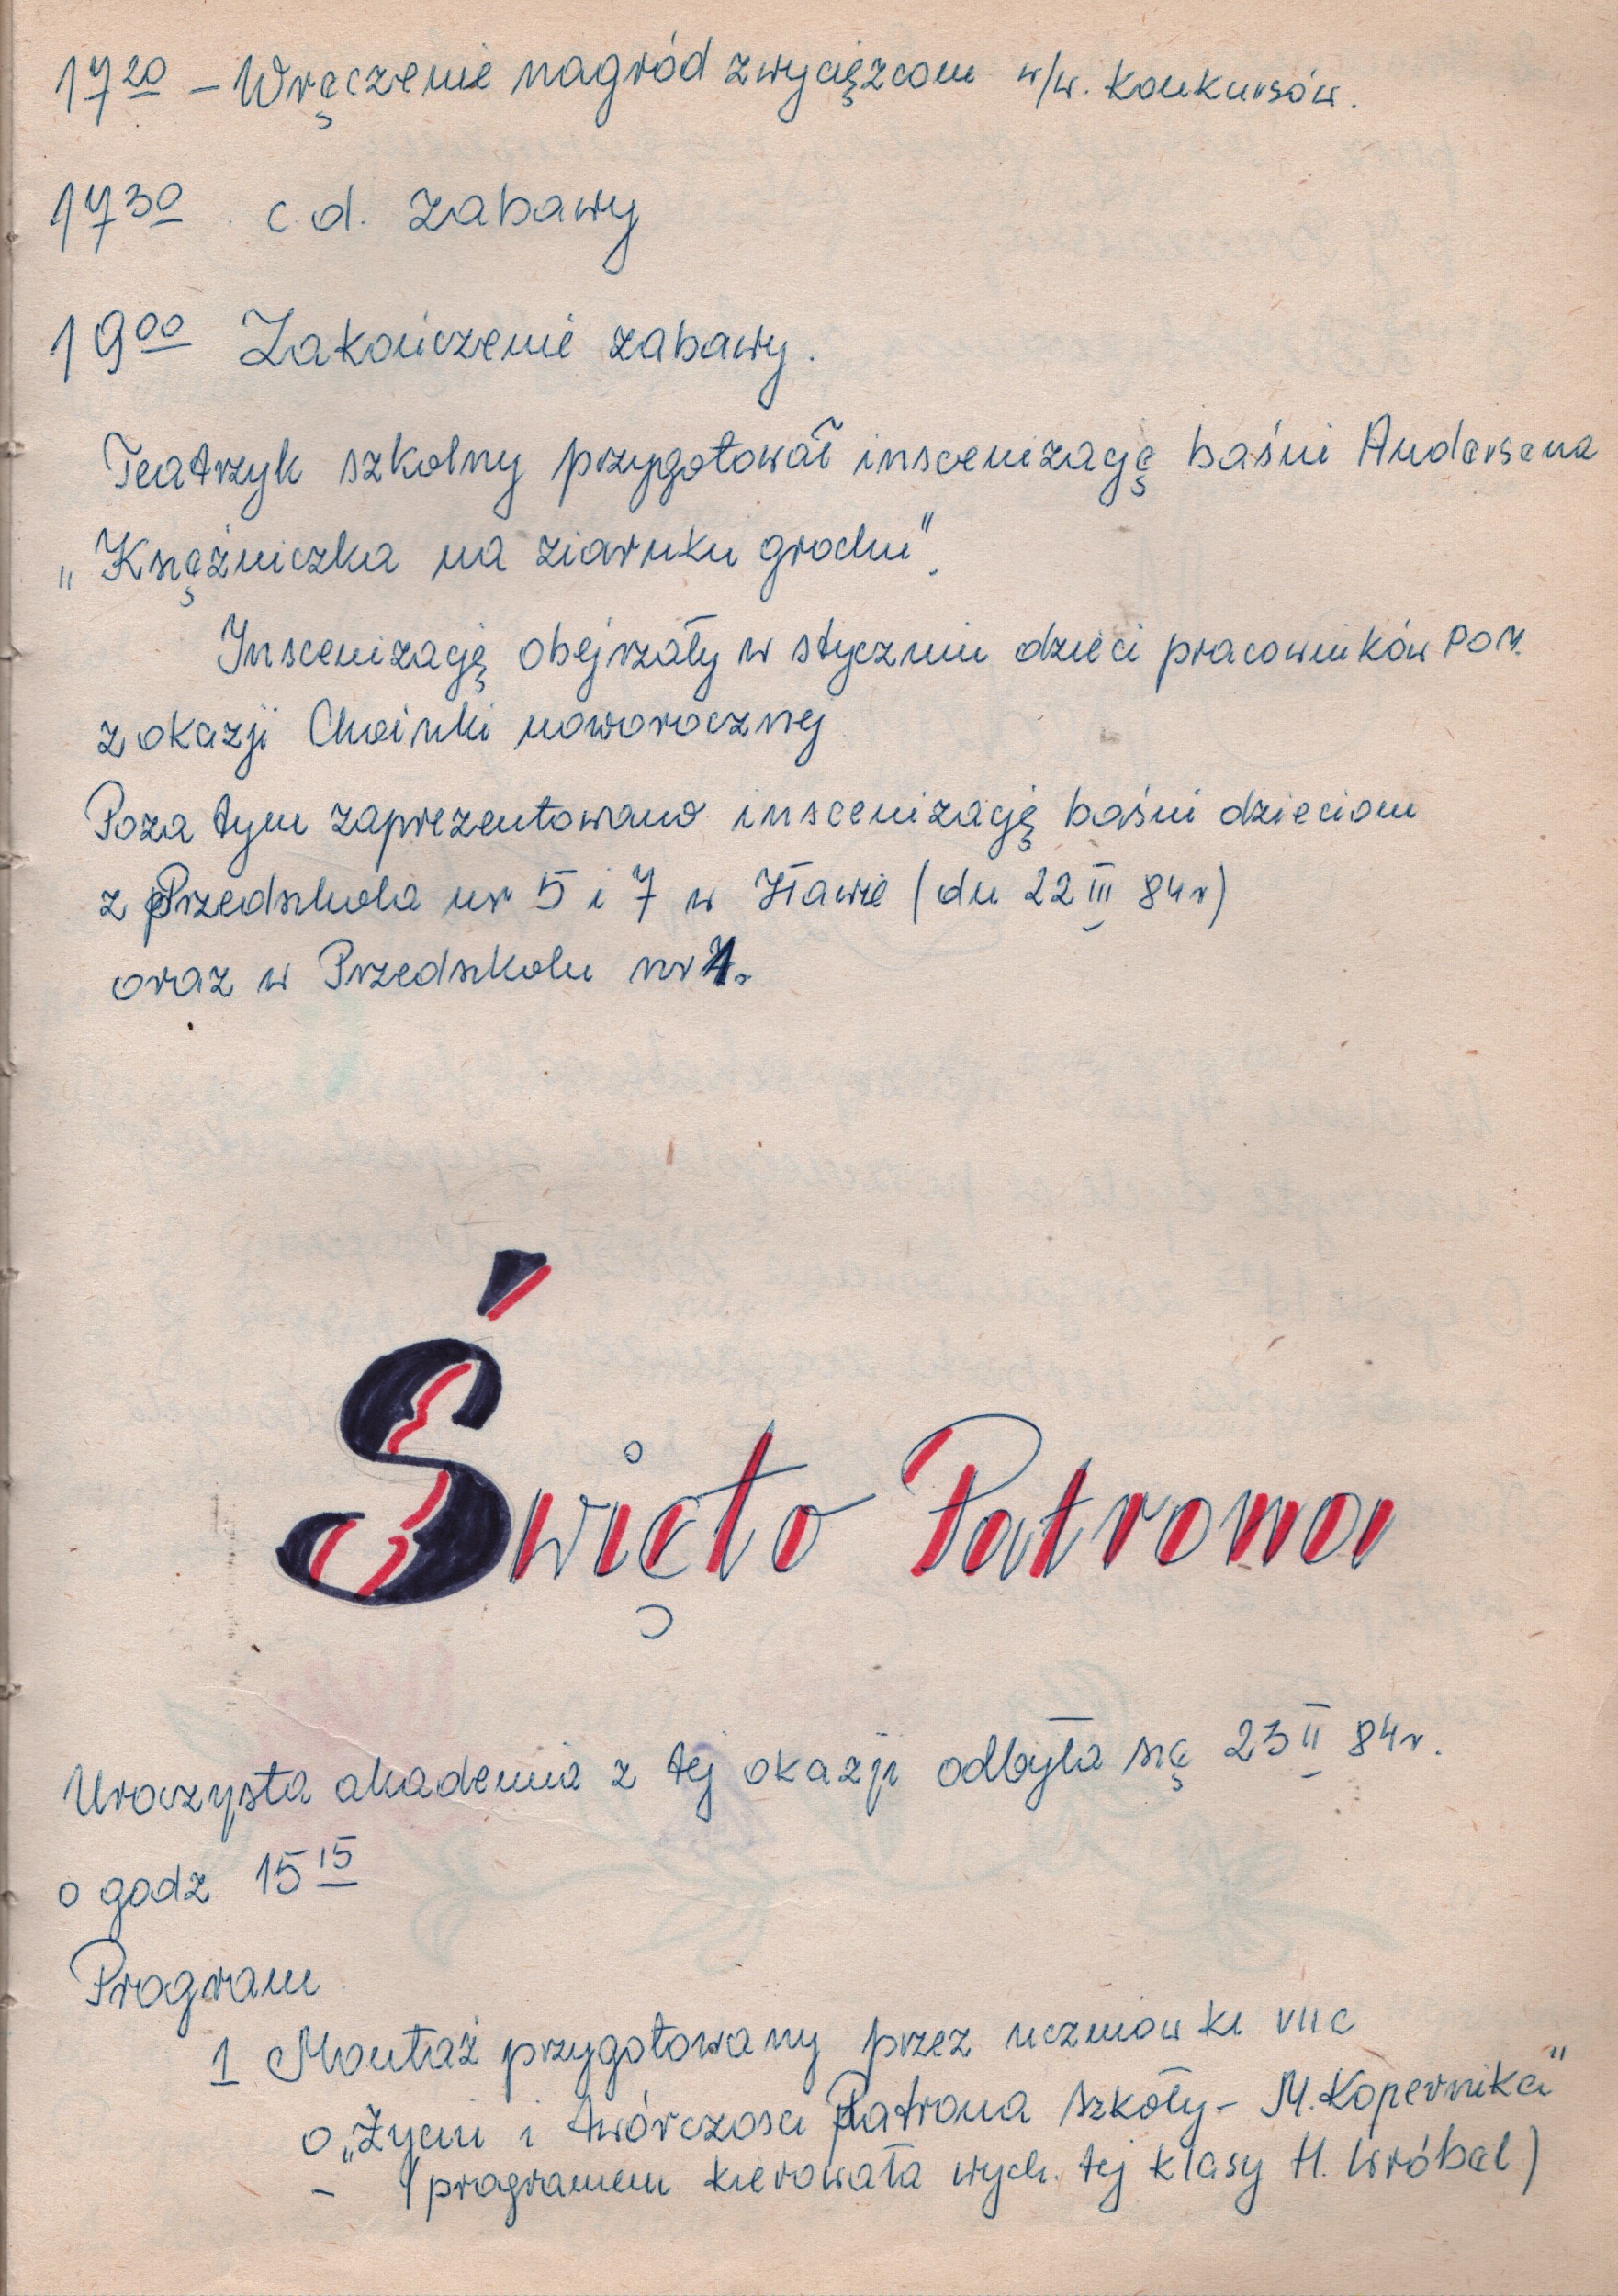 17 20 – Wręczenie nagród zwycięzcom w/w. konkursów.
17 30 c.d. zabawy
19 00 Zakończenie zabawy.
Teatrzyk szkolny przygotował inscenizację baśni Andersena
„Księżniczka na ziarnku grochu”.
Inscenizację obejrzały w styczniu dzieci pracowników POM.
z okazji Choinki noworocznej
Poza tym zaprezentowano inscenizację baśni dzieciom
z Przedszkola nr 5 i 7 w Iławie (dn 22 III 84r)
oraz w Przedszkolu nr 1.
Święto Patrona
Uroczysta akademia z tej okazji odbyła się 23 II 84r.
o godz 15 15
Program
1 Montaż przygotowany przez uczniów kl VII c
o „Życiu i twórczości Patrona Szkoły – M. Kopernika”
– (programem kierowała wych. tej klasy H. Wróbel)